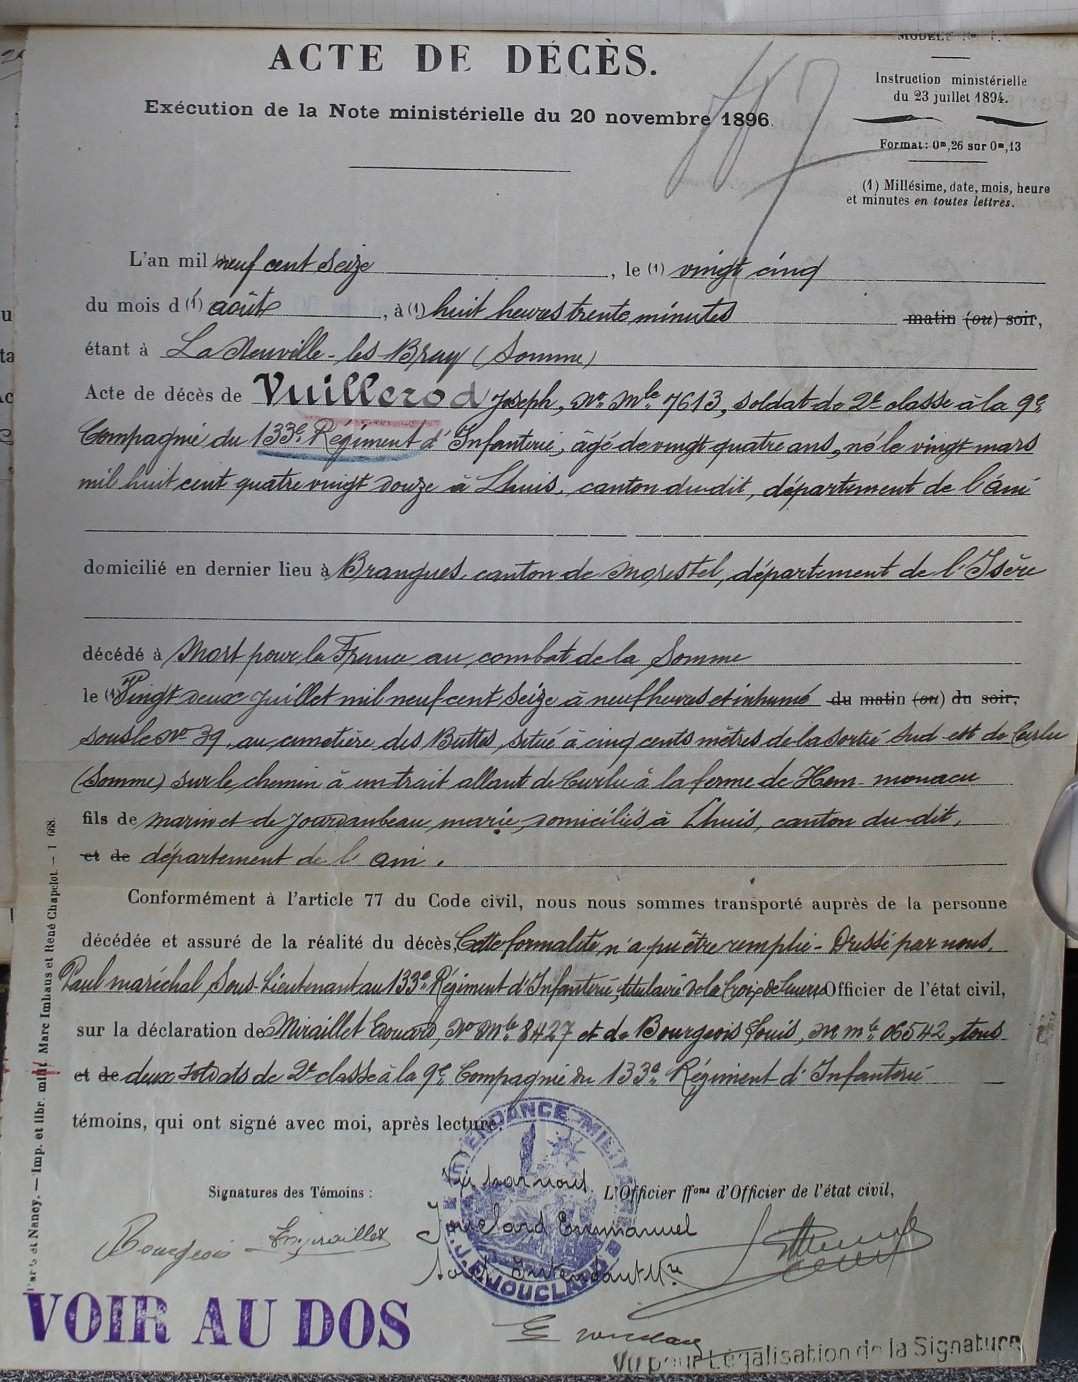 ACTE DE DÉCÈS.
Exécution de la Note ministérielle du 20 novembre 1896.
MODÈLE
Instruction ministérielle
du 23 juillet 1894.
Format: 0m,26 sur 0m,13
(1) Millésime, date, mois, heure
et minutes en toutes lettres.
L'an mil neuf cent seize, le (1) vingt cinq
du mois d (1) août, à (1) huit heures trente minutes matin (ou) soir,
étant à La Neuville-les Bray (Somme)
Acte de décès de Vuillerod Joseph, No Mle 7613, soldat de 2e classe à la 9e
Compagnie du 133e Régiment d'Infanterie, âgé de vingt quatre ans, né le vingt mars
mil huit cent quatre vingt douze à Lhuis, canton du dit, département de l'Ain
domicilié en dernier lieu à Brangues canton de Morestel, département de l'Isère
décédé à Mort pour la France au combat de la Somme
le (1) Vingt deux juillet mil neuf cent seize à neuf heures et inhumé du matin (ou) du soir,
sous le No 39, au cimetière des Buttes, situé à cinq cents mètres de la sortie Sud-est de Curlu
(Somme) sur le chemin à un trait allant de Curlu à la ferme de Hem-monacu
fils de Marin et de Jourdanbeau, marie, domiciliés à Lhuis, canton du dit,
et de département de l'Ain.
Conformément à l'article 77 du Code civil, nous nous sommes transporté auprès de la personne
décédée et assuré de la réalité du décès, Cette formalité n'a pu être remplie - Dressé par nous,
Paul maréchal Sous-Lieutenant au 133e Régiment d'Infanterie, titulaire de la Croix de Guerre Officier de l'état civil,
sur la déclaration de Miraillet Edouard, No Mle 8427 et de Bourgeois Louis, No mle 06542, tous
et de deux soldats de 2e classe à la 9e Compagnie du 133e Régiment d'Infanterie
témoins, qui ont signé avec moi, après lecture.
INTENDANCE MILITAIRE
Vu par nous
Signatures des Témoins :
L'Officier ffons d'Officier de l'état civil,
Bourgeois
Miraillet
Jouclard Emmanuel
Sous Intendant Mre
E. JOUCLARD
VOIR AU DOS
Vu pour Légalisation de la Signature
Nancy. — Imp. et libr. milit. Marc Imhaus et René Chapelot. — 1 668.